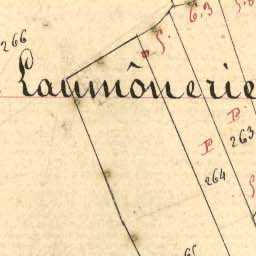 6.3
266
Laumônerie
P.
263
P
264